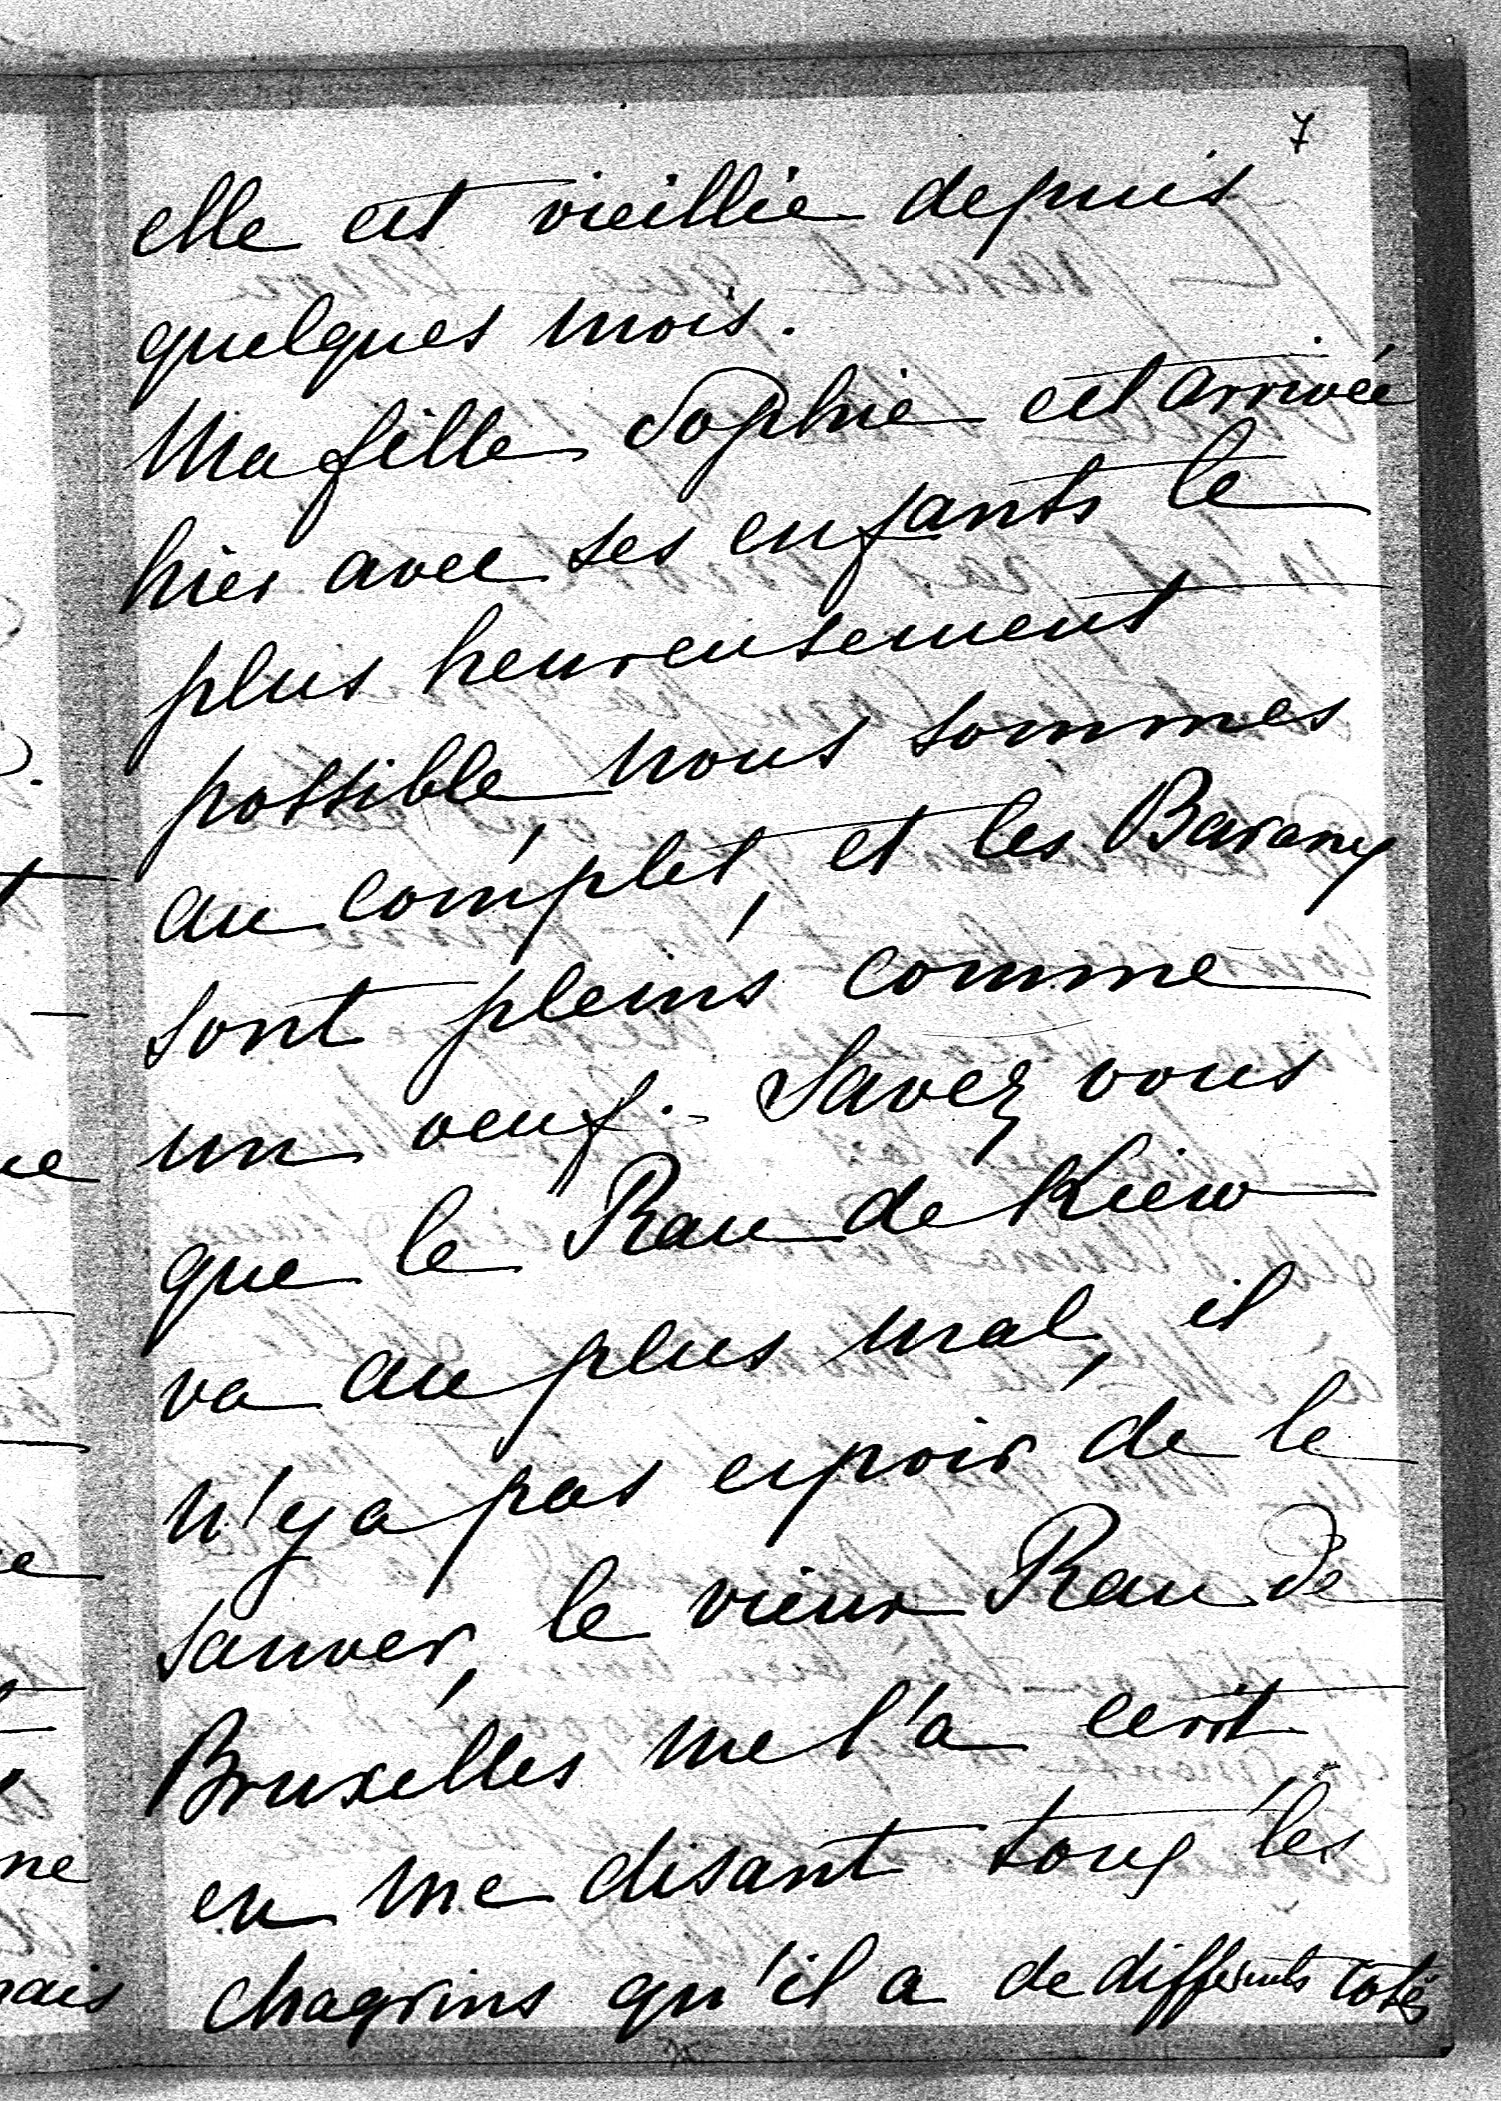 7
elle est vieillie depuis
quelques mois.
Ma fille Sophie est arrivée
hier avec ses enfants le
plus heureusement
possible, nous sommes
au complet, et les Barany
sont pleins comme
un oeuf. Savez vous
que le Rau de Kiew
va au plus mal, il
n'y a pas espoir de le
sauver, le vieux Rau de
Bruxelles me l'a ecrit
en me disant tous les
chagrins qu'il a de differents cotés